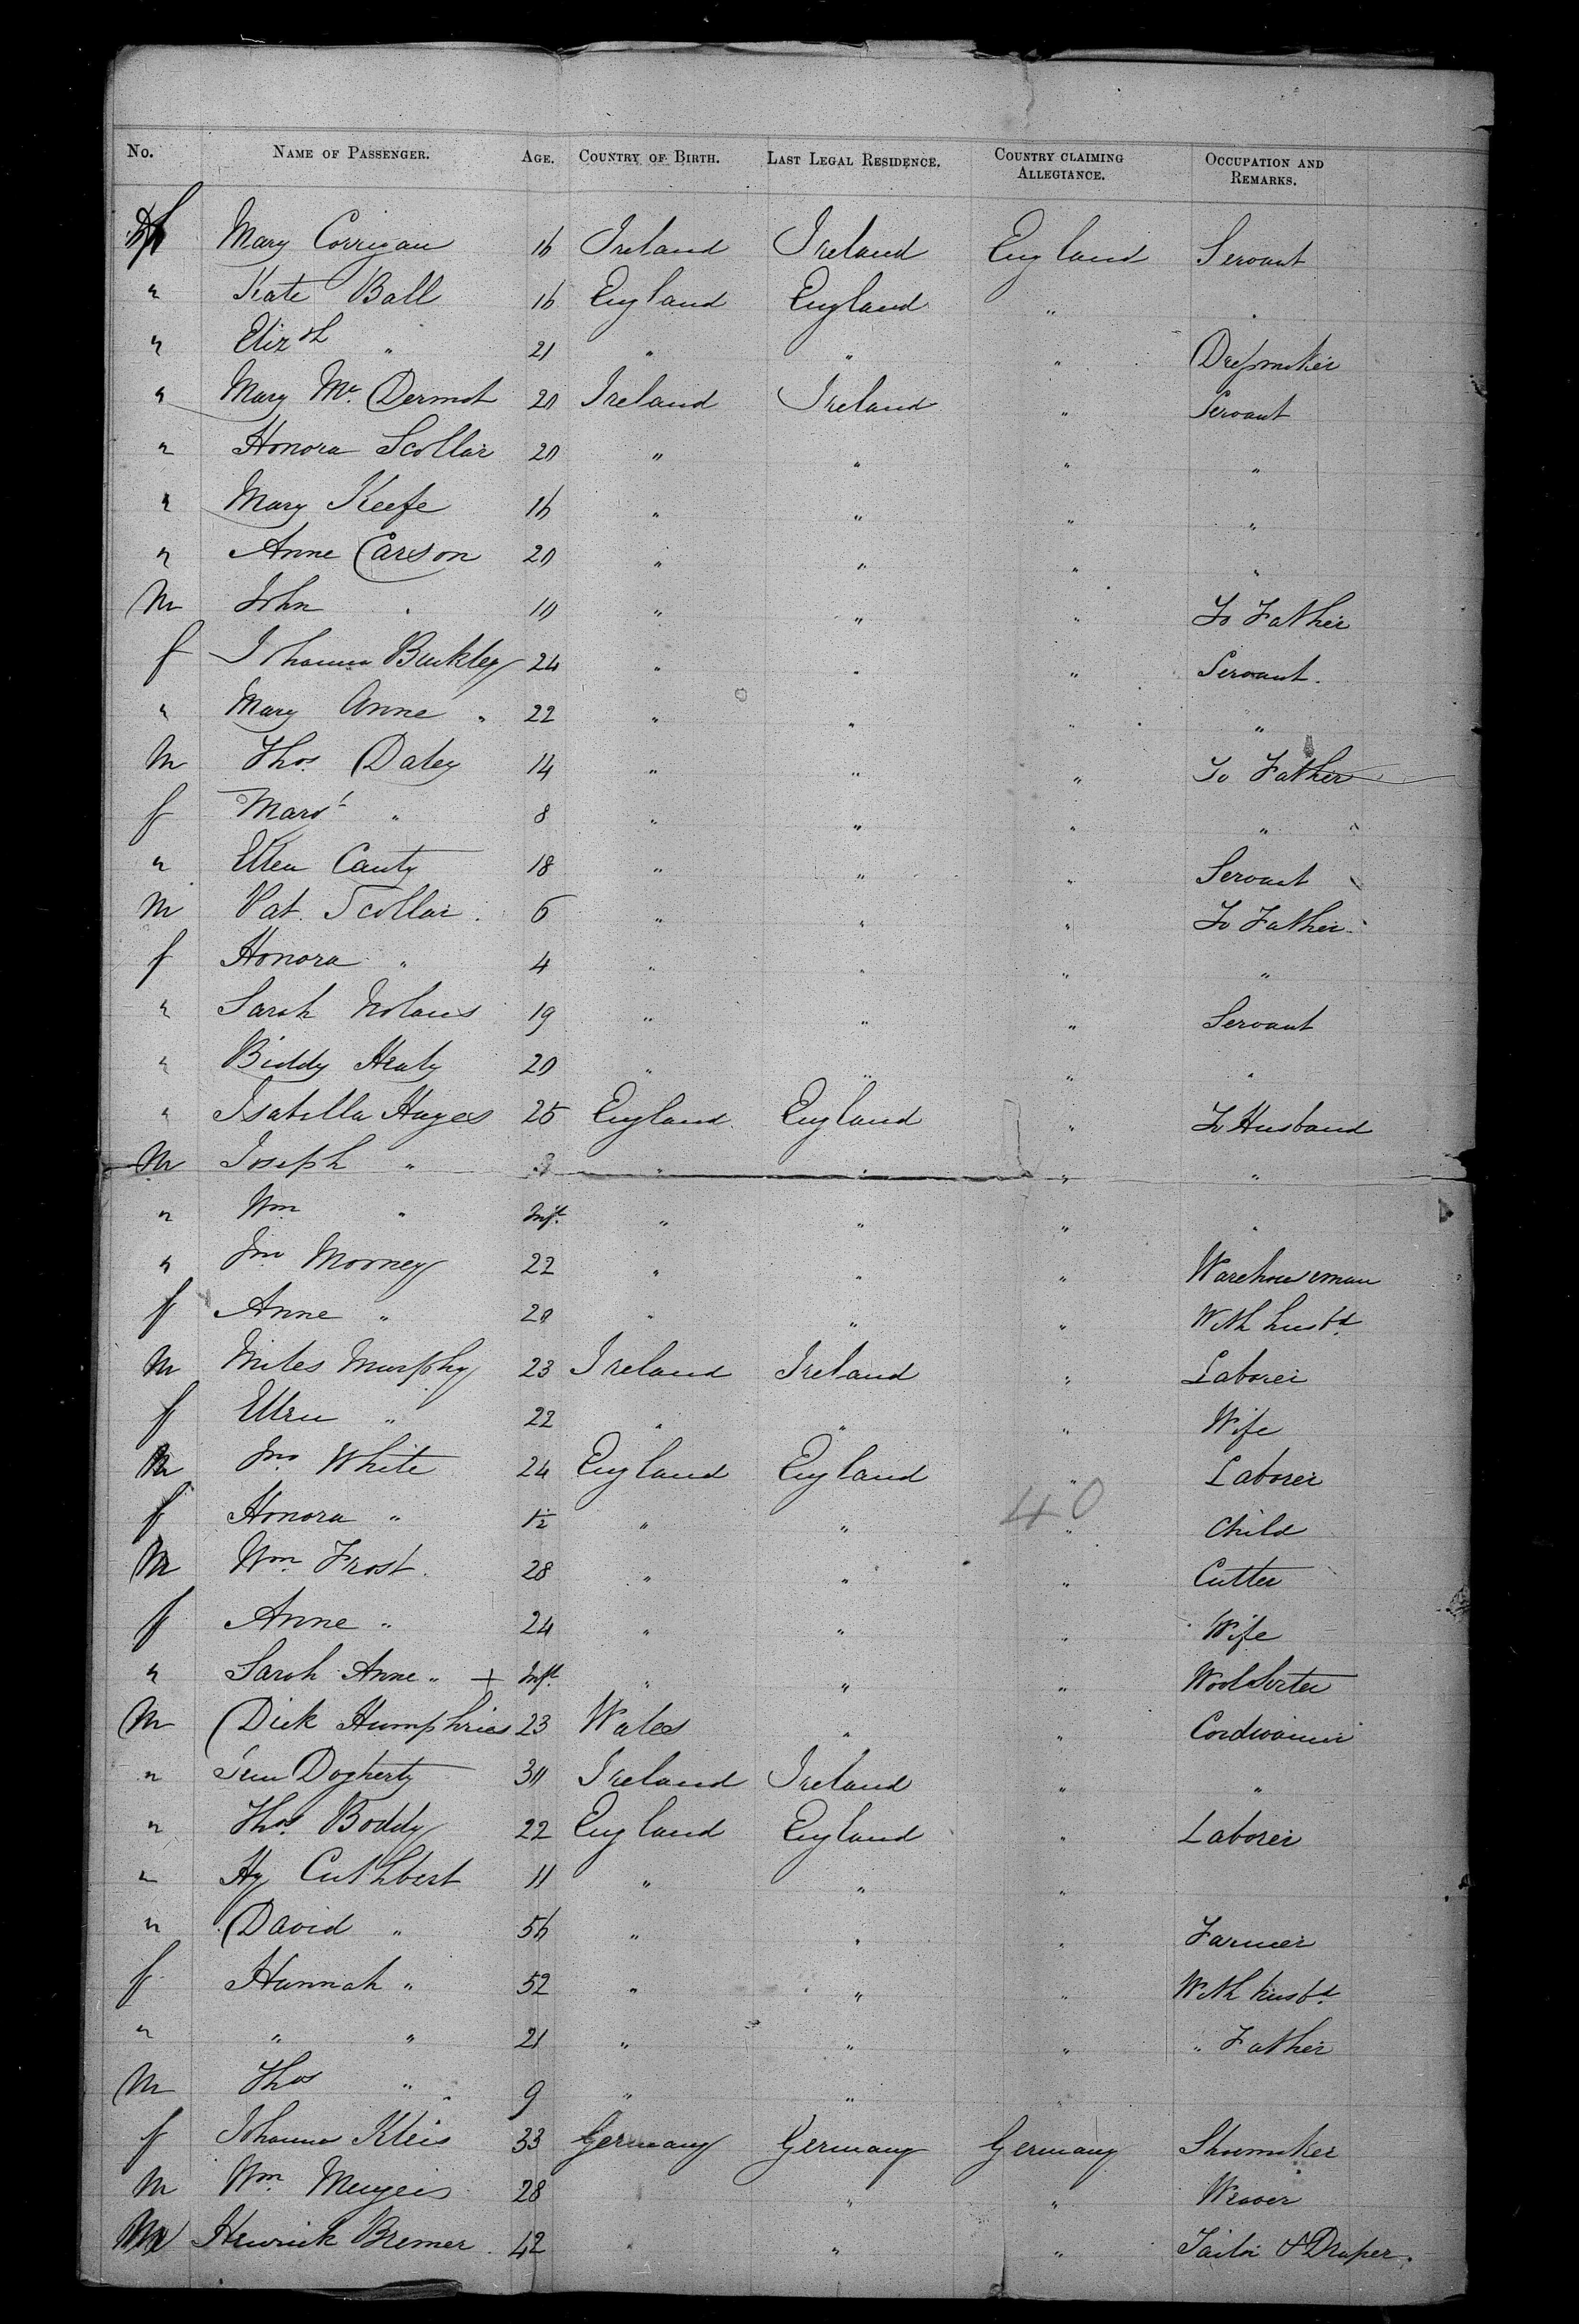 No. NAME OF PASSENGER. AGE. COUNTRY OF BIRTH. LAST LEGAL RESIDENCE. COUNTRY CLAIMING ALLEGIANCE. OCCUPATION AND REMARKS.
f Mary Corrigan 16 Ireland Ireland England Servant
" Kate Ball 16 England England " "
" Elizth " 21 " " " Dressmaker
" Mary Mc. Dermot 20 Ireland Ireland " Servant
" Honora Scollar 20 " " " "
" Mary Keefe 16 " " " "
" Anne Carson 20 " " " "
M John " 10 " " " To Father
f Johanna Buckley 24 " " " Servant.
" Mary Anne " 22 " " " "
M Thos. Daley 14 " " " To Father
f Margt " 8 " " " "
" Ellen Canty 18 " " " Servant
M Pat. Scollar 6 " " " To Father
f Honora " 4 " " " "
" Sarah Nolans 19 " " " Servant
" Biddy Healy 20 " " " "
" Isabella Hayes 25 England England " To Husband
M Joseph " 3 " " " "
" Wm " Inft. " " " "
" Jno Mooney 22 " " " Warehouseman
f Anne " 20 " " " With husbd.
M Miles Murphy 23 Ireland Ireland " Laborer
f Ellen " 22 " " " Wife
M Jno. White 24 England England " Laborer
f Honora " 1/2 " " 40 " Child
M Wm. Frost. 28 " " " Cutter
f Anne " 24 " " " Wife
" Sarah Anne " + Inft. " " " Wool Sorter
M Dick Humphries 23 Wales " " Cordwainer
" Dogherty 30 Ireland Ireland " "
" Thos. Boddy 22 England England " Laborer
" Hy Cuthbert 11 " " "
" David " 56 " " " Farmer
f Hannah " 52 " " " With husbd.
" " " 21 " " " " Father
M Thos " 9 " " "
f Johanna Kleis 33 Germany Germany Germany Shoemaker
M Wm. 28 " " Weaver
M Henrick Bremer 42 " " " Tailor & Draper.